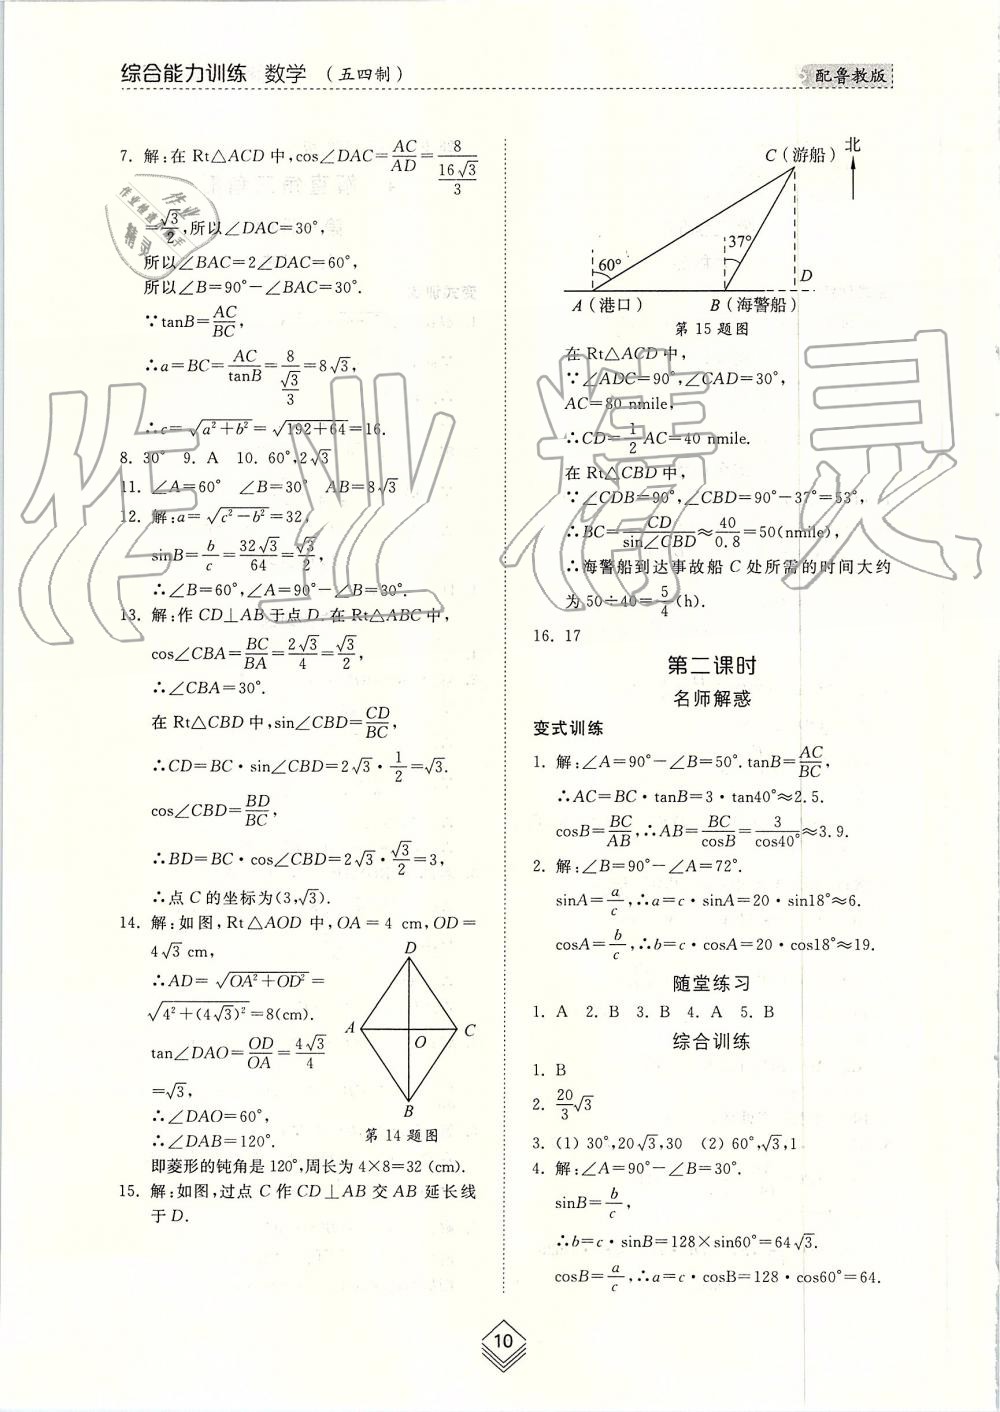 综合能力训练 数学 (五四制)
配鲁教版
7. 解:在 Rt△ACD 中,cos∠DAC=AC/AD=8/(16√3/3)
=√3/2,所以∠DAC=30°,
所以∠BAC=2∠DAC=60°,
所以∠B=90°-∠BAC=30°.
∵tanB=AC/BC,
∴a=BC=AC/tanB=8/(√3/3)=8√3,
∴c=√(a²+b²)=√(192+64)=16.
8. 30° 9. A 10. 60°,2√3
11. ∠A=60° ∠B=30° AB=8√3
12. 解:a=√(c²-b²)=32,
sinB=b/c=32√3/64=√3/2,
∴∠B=60°,∠A=90°-∠B=30°.
13. 解:作 CD⊥AB 于点 D.在 Rt△ABC 中,
cos∠CBA=BC/BA=2√3/4=√3/2,
∴∠CBA=30°.
在 Rt△CBD 中,sin∠CBD=CD/BC,
∴CD=BC·sin∠CBD=2√3·1/2=√3.
cos∠CBD=BD/BC,
∴BD=BC·cos∠CBD=2√3·√3/2=3,
∴点 C 的坐标为(3,√3).
14. 解:如图,Rt△AOD 中,OA=4 cm,OD=
4√3 cm,
∴AD=√(OA²+OD²)=
√(4²+(4√3)²)=8(cm).
tan∠DAO=OD/OA=4√3/4
=√3,
∴∠DAO=60°,
∴∠DAB=120°.
D
A
O
C
B
第 14 题图
即菱形的钝角是 120°,周长为 4×8=32 (cm).
15. 解:如图,过点 C 作 CD⊥AB 交 AB 延长线
于 D.
C (游船)
北
37°
60°
D
A (港口)
B (海警船)
第 15 题图
在 Rt△ACD 中,
∵∠ADC=90°,∠CAD=30°,
AC=80 nmile,
∴CD=1/2AC=40 nmile.
在 Rt△CBD 中,
∵∠CDB=90°,∠CBD=90°-37°=53°,
∴BC=CD/sin∠CBD≈40/0.8=50(nmile),
∴海警船到达事故船 C 处所需的时间大约
为 50÷40=5/4(h).
16. 17
第二课时
名师解惑
变式训练
1. 解:∠A=90°-∠B=50°.tanB=AC/BC,
∴AC=BC·tanB=3·tan40°≈2.5.
cosB=BC/AB,∴AB=BC/cosB=3/cos40°≈3.9.
2. 解:∠B=90°-∠A=72°.
sinA=a/c,∴a=c·sinA=20·sin18°≈6.
cosA=b/c,∴b=c·cosA=20·cos18°≈19.
随堂练习
1. A 2. B 3. B 4. A 5. B
综合训练
1. B
2. 20/3√3
3. (1) 30°,20√3,30 (2) 60°,√3,1
4. 解:∠A=90°-∠B=30°.
sinB=b/c,
∴b=c·sinB=128×sin60°=64√3.
cosB=a/c,∴a=c·cosB=128·cos60°=64.
10
作业精灵
作业
作业检查小助手
精灵